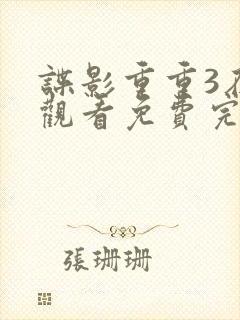 諜影重重3
觀看免費完
張珊珊